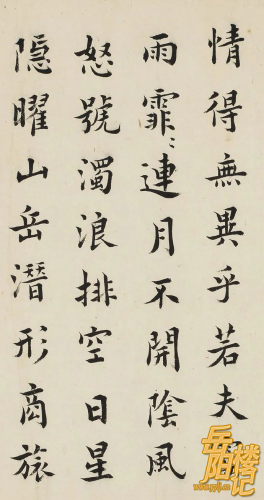 情得無異乎若夫
雨霏〻連月不開陰風
怒號濁浪排空日星
隱曜山岳潛形商旅
岳阳楼记